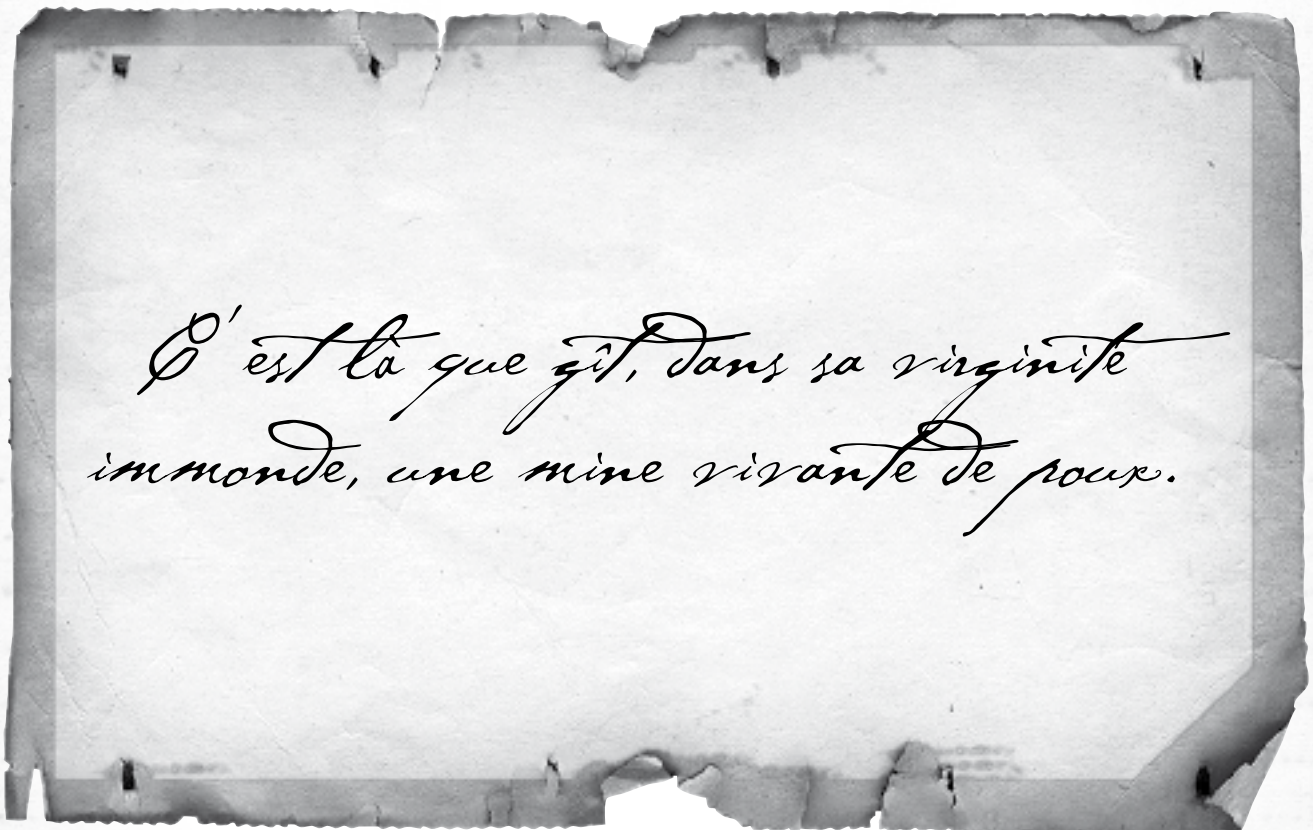 C'est là que gît, dans sa virginité
immonde, une mine vivante de poux.